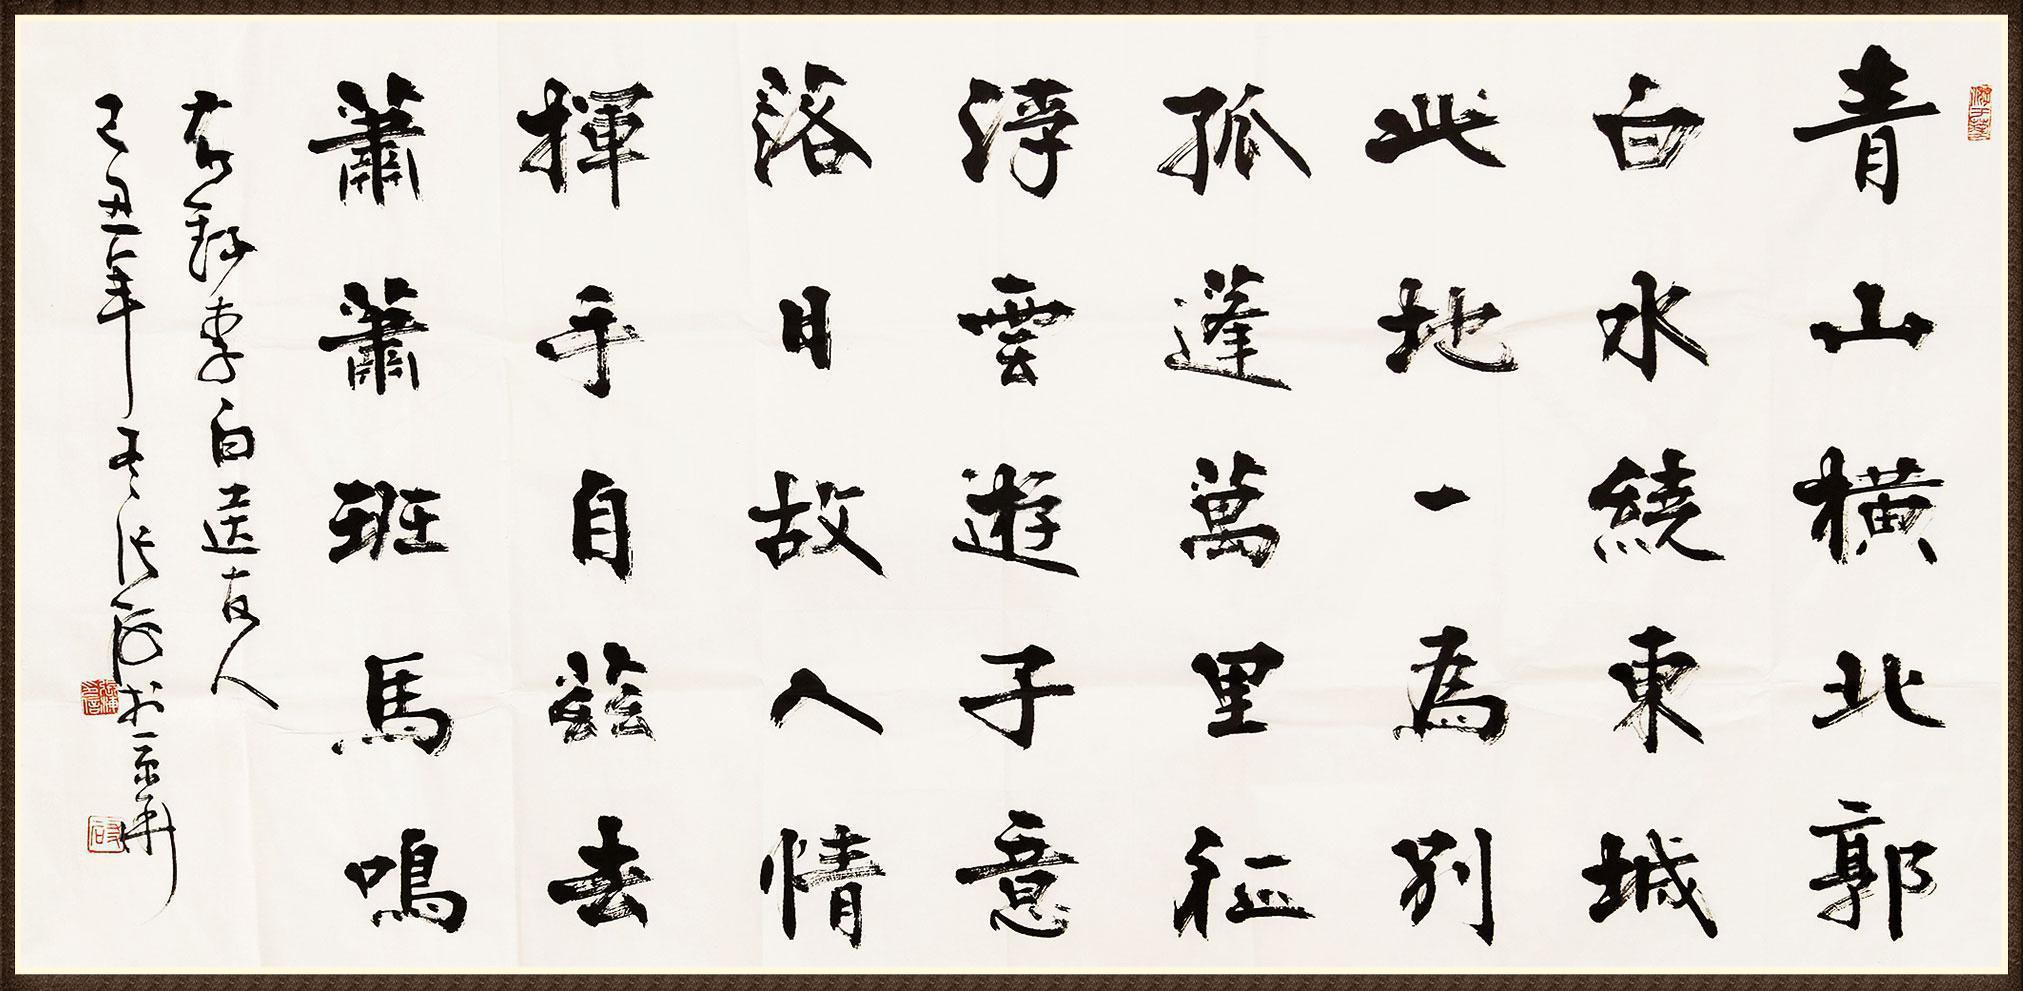 青山橫北郭
白水繞東城
此地一為別
孤蓬萬里征
浮雲遊子意
落日故人情
揮手自茲去
蕭蕭班馬鳴
李白送友人
己丑年冬張海於京華